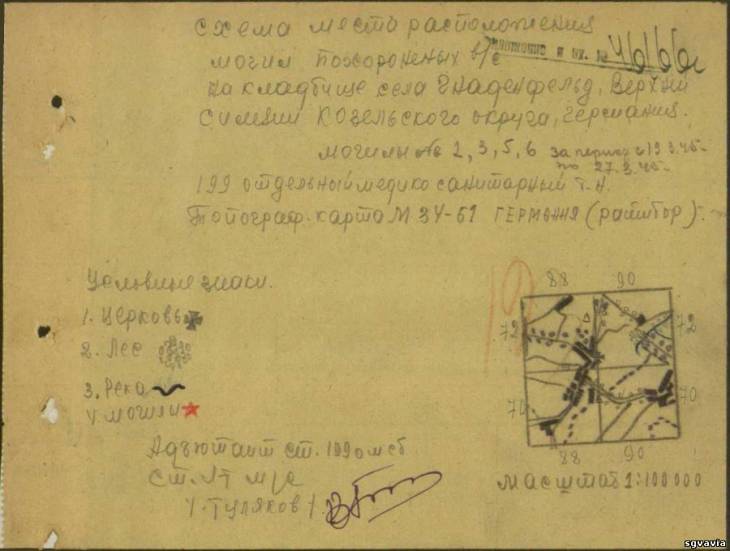 Схема места расположения
могил похороненых в/с
на кладбище села Гнаденфельд, Верхни
Силезии Козельского округа, Германия.
могилы №№ 2, 3, 5, 6 за период с 19.3.45
по 27.3.45
199 отдельный медико санитарный
Топограф. карта М 34-61 ГЕРМАНИЯ (ратибор) г.
Условные знаки.
1. Церковь
2. Лес
3. Река
4 могилы
88 90
72 72
70 70
88 90
Масштаб 1:100000
Адъютант ст. 199 омсб
Ст. л-т м/с
/. Туляков /.
sgvavia